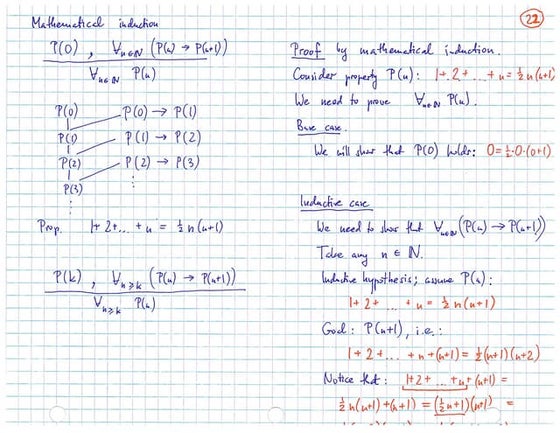 22
Mathematical induction
P(0) , ∀n∈ℕ (P(n) → P(n+1))
∀n∈ℕ P(n)
P(0)
P(0) → P(1)
P(1)
P(1) → P(2)
P(2)
P(2) → P(3)
P(3)
⋮
⋮
Prop. 1+2+...+n = ½n(n+1)
P(k) , ∀n⩾k (P(n) → P(n+1))
∀n⩾k P(n)
Proof by mathematical induction.
Consider property P(n): 1+2+...+n = ½n(n+1)
We need to prove ∀n∈ℕ P(n).
Base case.
We will show that P(0) holds: 0=½·0·(0+1)
Inductive case
We need to show that ∀n∈ℕ(P(n)→P(n+1))
Take any n ∈ ℕ.
Inductive hypothesis; assume P(n):
1+2+ ... +n = ½n(n+1)
Goal: P(n+1), i.e.:
1+2+ ... +n+(n+1)=½(n+1)(n+2)
Notice that: 1+2+ ... +n+(n+1) =
½n(n+1)+(n+1) = (½n+1)(n+1) =